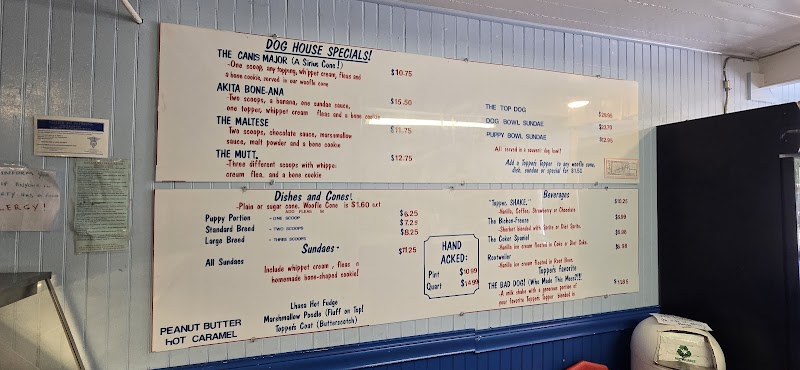 DOG HOUSE SPECIALS!
THE CANIS MAJOR (A Sirius Cone!)
-One scoop, any topping, whippet cream, fleas and
a bone cookie, served in our woofle cone
$10.75
AKITA BONE-ANA
-Two scoops, a banana, one sundae sauce,
one topper, whippet cream fleas and a bone cookie
$15.50
THE MALTESE
Two scoops, chocolate sauce, marshmallow
sauce, malt powder and a bone cookie
$11.75
THE MUTT.
-Three different scoops with whippe
cream flea, and a bone cookie
$12.75
THE TOP DOG
DOG BOWL SUNDAE
PUPPY BOWL SUNDAE
$12.95
All served in a souvenir dog bowl!
Add a Topper's Topper to any woofle cone,
dish, sundae or special for $1.50
Dishes and Cones!
-Plain or sugar cone. Woofle Cone is $1.60 ext
ADD FLEAS
Puppy Portion - ONE SCOOP $6.25
Standard Breed - TWO SCOOPS $7.25
Large Breed - THREE SCOOPS $8.25
Sundaes -
All Sundaes $11.25
Include whippet cream , fleas n
homemade bone-shaped cookie!
Lhasa Hot Fudge
Marshmallow Poodle (Fluff on Top!
Topper's Coat (Butterscotch)
PEANUT BUTTER
HOT CARAMEL
HAND
ACKED:
Pint $10.99
Quart $14.99
Beverages
"Topper, SHAKE,"
-Vanilla, Coffee, Strawberry or Chocolate
$10.25
The Bichon-Freeze
-Sherbet blended with Sprite or Diet Sprite.
The Coker Spaniel
-Vanilla ice cream floated in Coke or Diet Coke.
Rootweiler
-Vanilla ice cream floated in Root Beer.
Topper's Favorite
THE BAD DOG! (Who Made This Mess?!?!)
- A milk shake with a generous portion of
your favorite Toppers Topper blended in